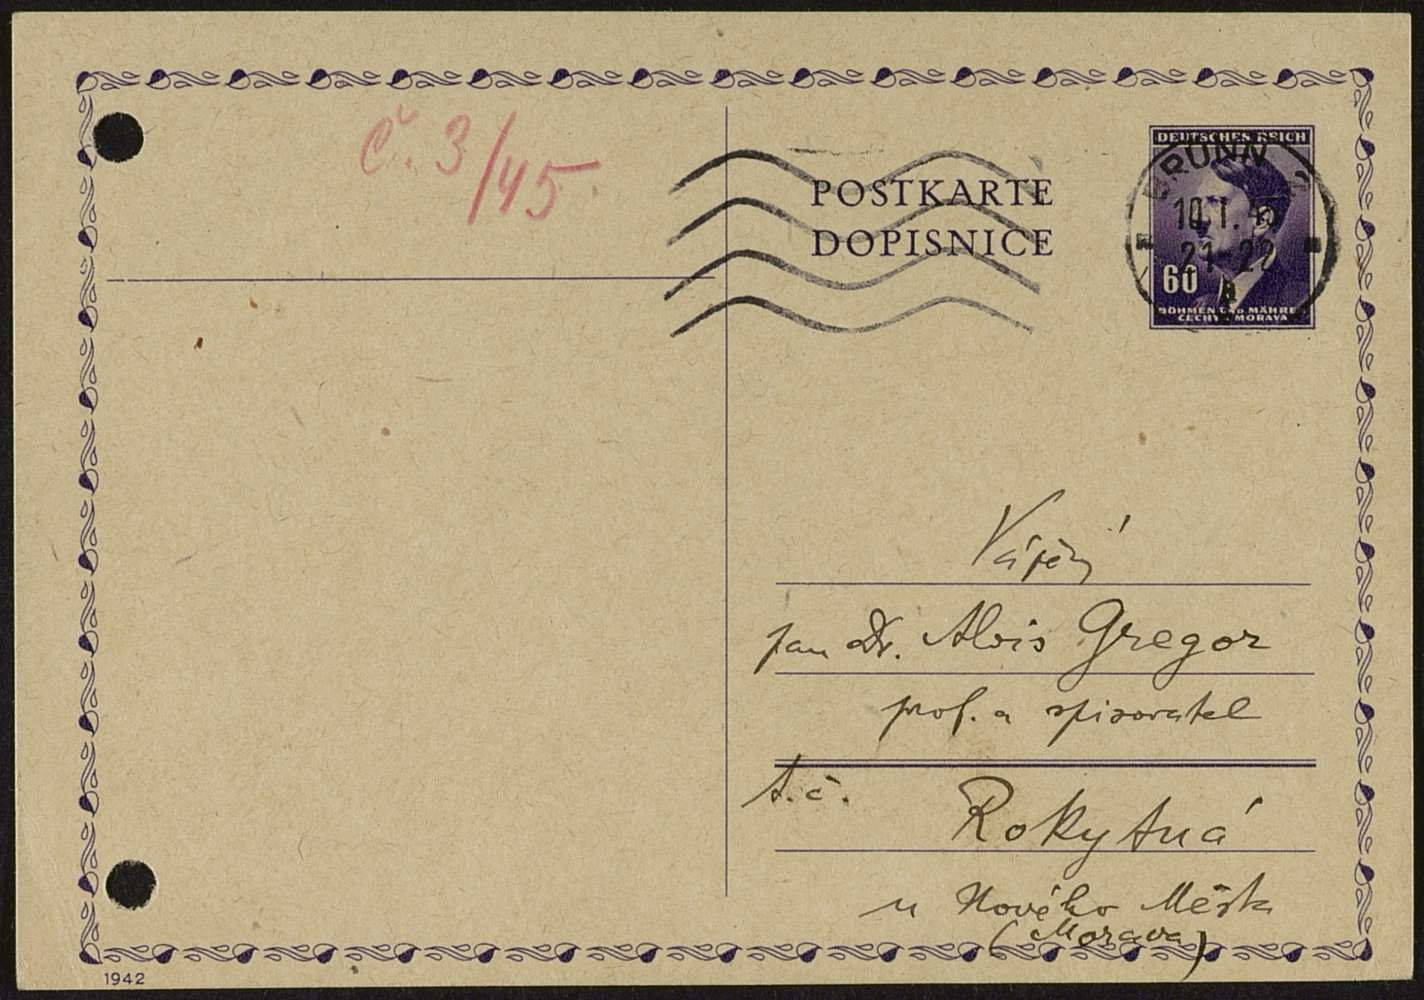 č. 3/45
POSTKARTE
DOPISNICE
DEUTSCHES REICH
BRÜNN
10.I.45
21-22
60
BÖHMEN UND MÄHREN
ČECHY A MORAVA
Vážený
pan Dr. Alois Gregor
prof. a spisovatel
t.č.
Rokytná
u Nového Města
(Morava)
1942